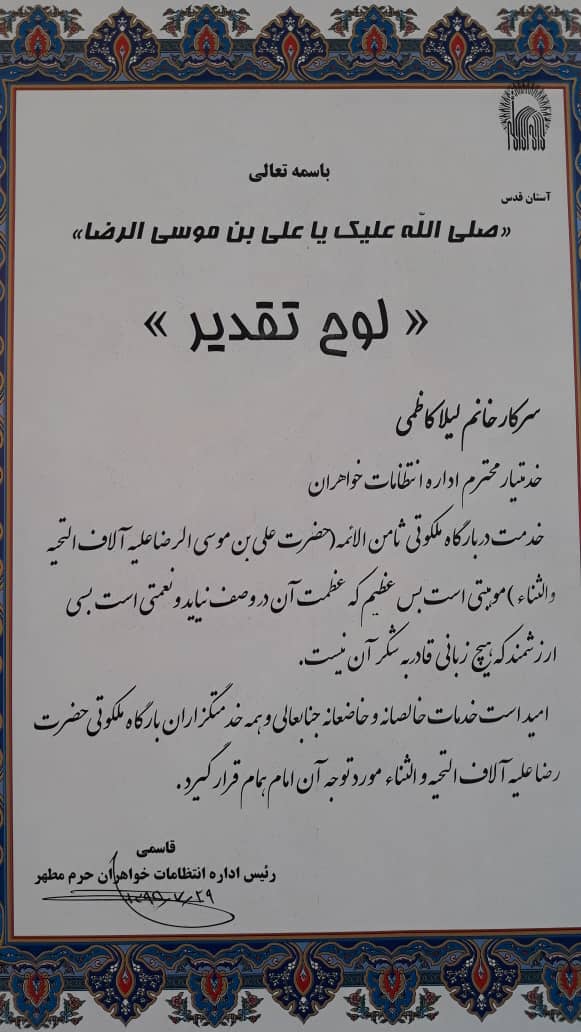 باسمه تعالی
آستان قدس
«صلی الله علیک یا علی بن موسی الرضا»
« لوح تقدیر »
سرکار خانم لیلا کاظمی
خدمتیار محترم اداره انتظامات خواهران
خدمت در بارگاه ملکوتی ثامن الائمه(حضرت علی بن موسی الرضا علیه آلاف التحیه
والثناء )موهبتی است بس عظیم که عظمت آن در وصف نیاید و نعمتی است بسی
ارزشمند که هیچ زبانی قادر به شکر آن نیست.
امید است خدمات خالصانه و خاضعانه جنابعالی و همه خدمتگزاران بارگاه ملکوتی حضرت
رضا علیه آلاف التحیه و الثناء مورد توجه آن امام همام قرار گیرد .
قاسمی
رئیس اداره انتظامات خواهران حرم مطهر